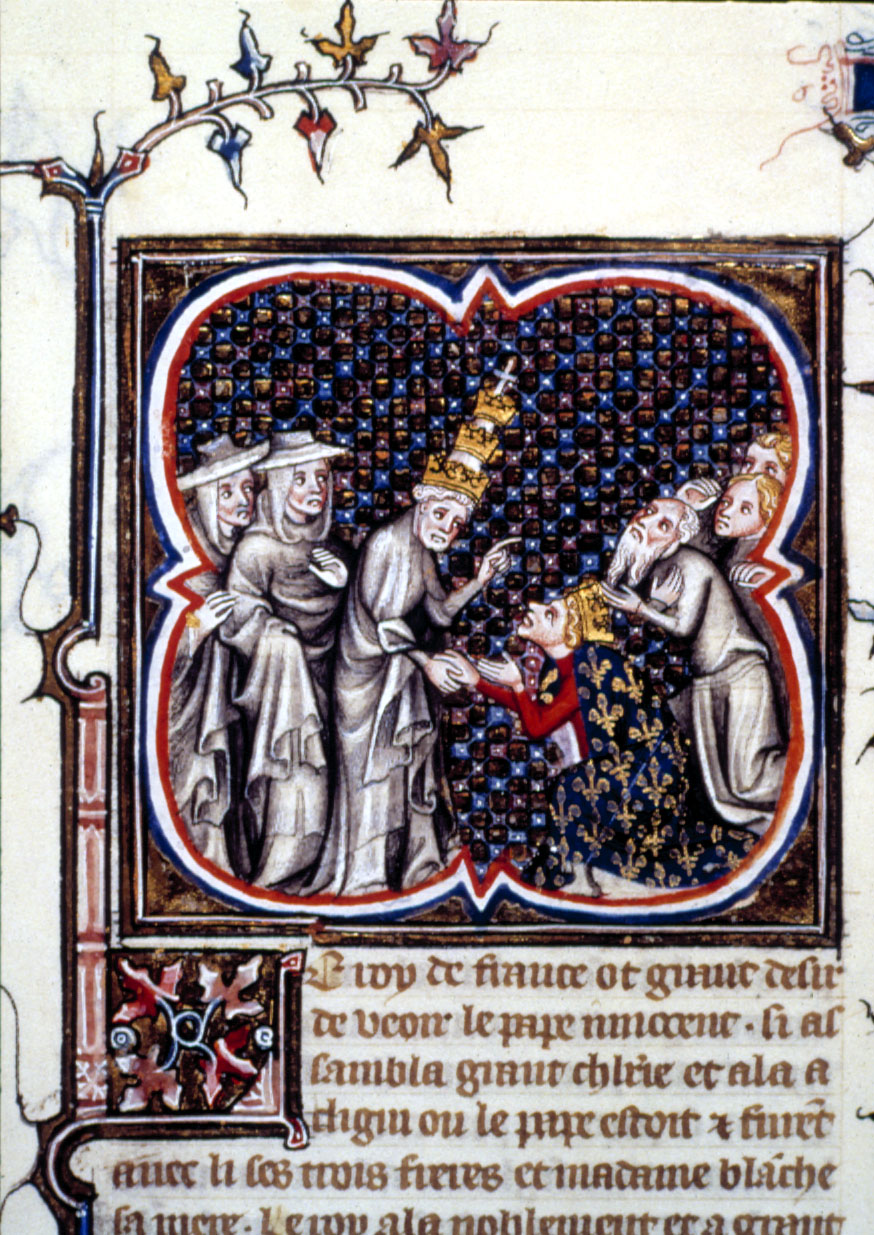 Le roy de france ot grant desir
de veoir le pape innocent . si as
sambla grant chl'rie et ala a
cligni ou le pape estoit ⁊ furēt
auec li ses trois freres et madame blāche
sa mere . Le roy ala noblement et a grant